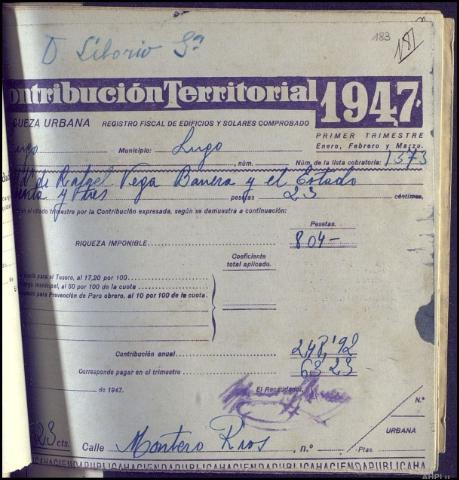 183
181
D Siborio Sª
ontribución Territorial 1947
QUEZA URBANA REGISTRO FISCAL DE EDIFICIOS Y SOLARES COMPROBADO
PRIMER TRIMESTRE
Enero, Febrero y Marzo.
ugo Municipio: Lugo
, núm. Núm. de la lista cobratoria: 1373
de Rafael Vega Barrera y el Estado
enta y tres pesetas 23 céntimos,
el citado trimestre por la Contribución expresada, según se demuestra a continuación:
Pesetas.
RIQUEZA IMPONIBLE 804-
Coeficiente
total aplicado.
cuota para el Tesoro, al 17,20 por 100
municipal, al 80 por 100 de la cuota
para Prevención de Paro obrero, al 10 por 100 de la cuota.
Contribución anual 248,92
Corresponde pagar en el trimestre 63 23
de 1947. El Recaudador,
N.º
URBANA
23 cts. Calle Montero Rios, n.º Ptas.
PUBLICAHACIENDAPUBLICAHACIENDAPUBLICAHACIENDAPUBLICAHA
AHPLu